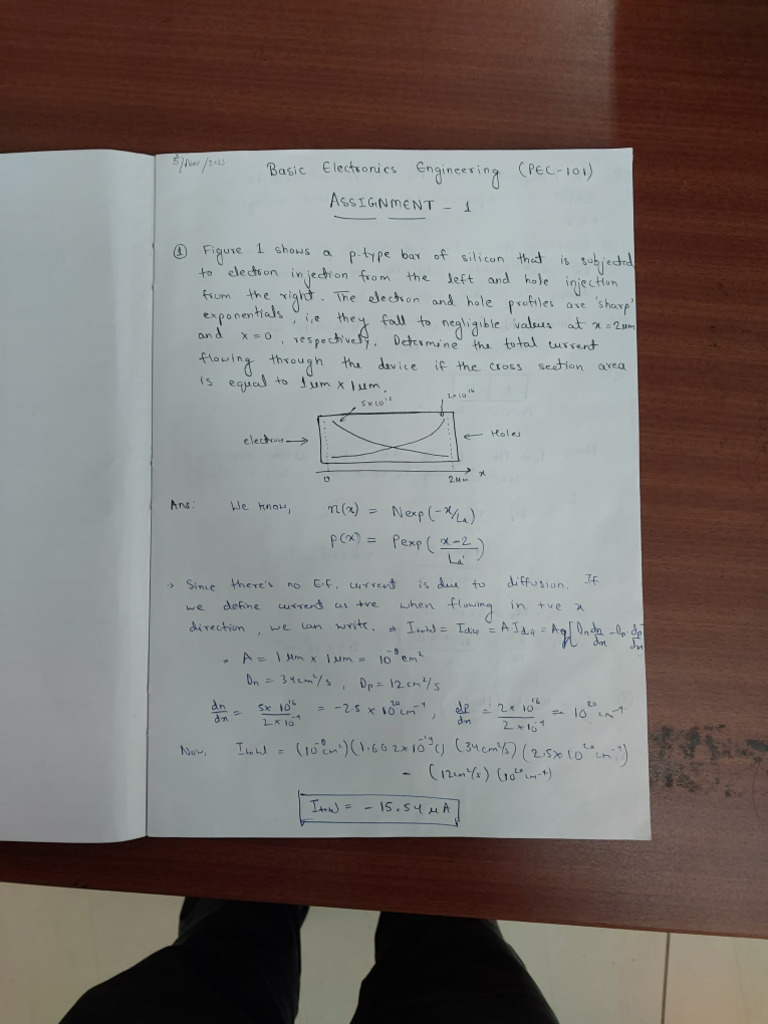 Basic Electronics Engineering (PEC-101)
ASSIGNMENT - 1
① Figure 1 shows a p-type bar of silicon that is subjected
to electron injection from the left and hole injection
from the right. The electron and hole profiles are 'sharp'
exponentials, i,e they fall to negligible values at x = 2um
and x = 0, respectively. Determine the total current
flowing through the device if the cross section area
is equal to 1um x 1um.
5x10¹⁶ 2x10¹⁶
electron → ← Holes
0 2um x
Ans: We know, n(x) = Nexp(-x/Ld)
p(x) = Pexp(x-2/Ld')
→ Since there's no E.F, current is due to diffusion. If
we define current as +ve when flowing in +ve x
direction, we can write. Itotal = Idiff = A Jdiff = Aq[Dn dn/dx - Dp dp/dx]
A = 1um x 1um = 10⁻⁸cm²
Dn = 34cm²/s, Dp = 12cm²/s
dn/dx = 5x10¹⁶/2x10⁻⁴ = -2.5 x 10²⁰cm⁻⁴, dp/dx = 2x10¹⁶/2x10⁻⁴ = 10²⁰cm⁻⁴
Now, Itotal = (10⁻⁸cm²)(1.602x10⁻¹⁹C) (34cm²/s) (2.5x10²⁰cm⁻⁴)
- (12cm²/s) (10²⁰cm⁻⁴)
Itotal = -15.54 uA